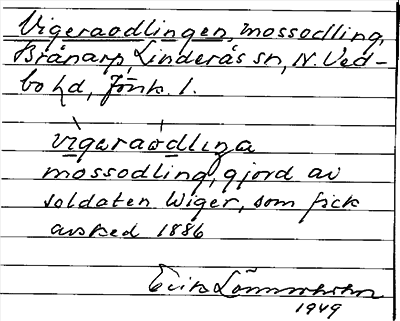 Vigeraodlingen, mossodling,
Brånarp, Linderås sn, N. Ved-
bo hd, Jönk. l.
vìgəraòdlıŋa
mossodling, gjord av
soldaten Wiger, som fick
avsked 1886
Erik
1949